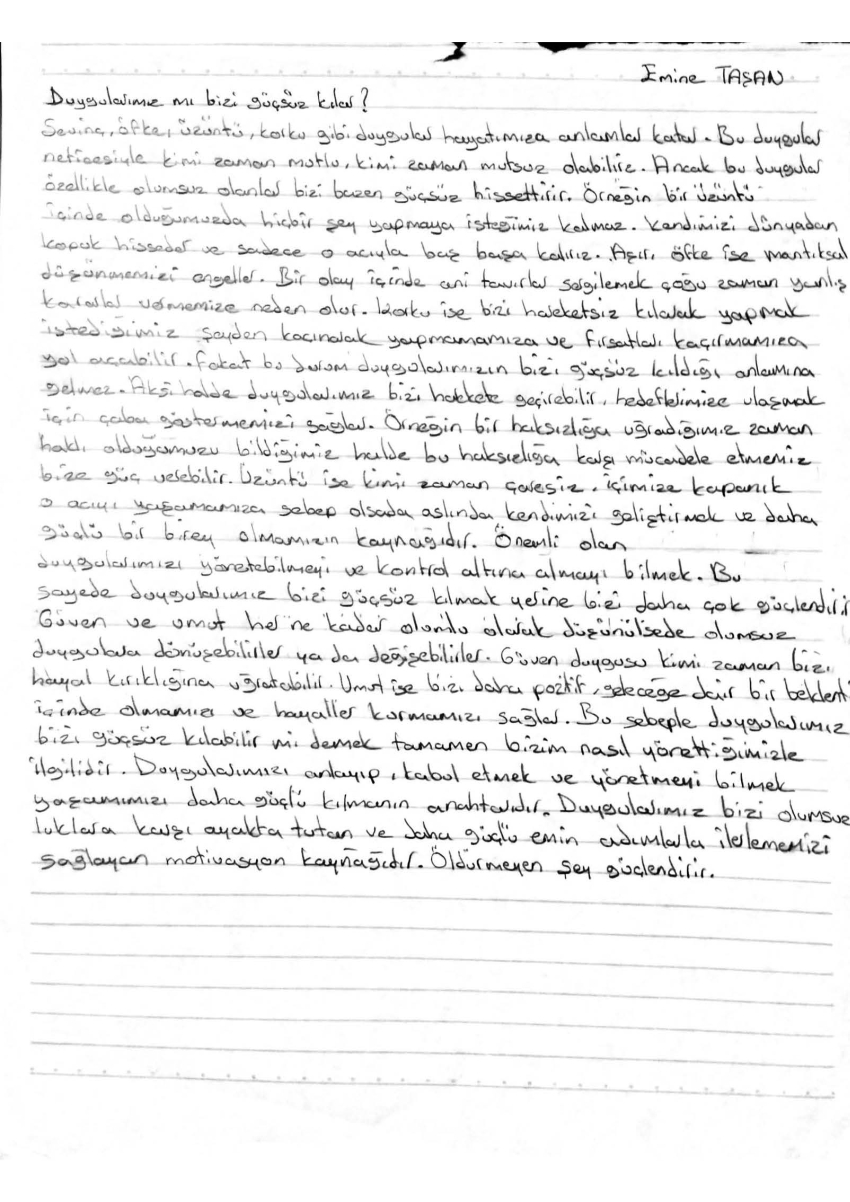 Emine TAŞAN
Duygularımız mı bizi güçsüz kılar?
Sevinç, öfke, üzüntü, korku gibi duygular hayatımıza anlamlar katar. Bu duygular
neticesiyle kimi zaman mutlu, kimi zaman mutsuz olabiliriz. Ancak bu duygular
özellikle olumsuz olanlar bizi bazen güçsüz hissettirir. Örneğin bir üzüntü
içinde olduğumuzda hiçbir şey yapmaya isteğimiz kalmaz. Kendimizi dünyadan
kopuk hisseder ve sadece o acıyla baş başa kalırız. Aşırı öfke ise mantıksal
düşünmemizi engeller. Bir olay içinde ani tavırlar sergilemek çoğu zaman yanlış
kararlar vermemize neden olur. Korku ise bizi hareketsiz kılarak yapmak
istediğimiz şeyden kaçınarak yapmamamıza ve fırsatları kaçırmamıza
yol açabilir. Fakat bu durum duygularımızın bizi güçsüz kıldığı anlamına
gelmez. Aksi halde duygularımız bizi harekete geçirebilir, hedeflerimize ulaşmak
için çaba göstermemizi sağlar. Örneğin bir haksızlığa uğradığımız zaman
haklı olduğumuzu bildiğimiz halde bu haksızlığa karşı mücadele etmemiz
bize güç verebilir. Üzüntü ise kimi zaman çaresiz, içimize kapanık
o acıyı yaşamamıza sebep olsada aslında kendimizi geliştirmek ve daha
güçlü bir birey olmamızın kaynağıdır. Önemli olan
duygularımızı yönetebilmeyi ve kontrol altına almayı bilmek. Bu
sayede duygularımız bizi güçsüz kılmak yerine bizi daha çok güçlendirir
Güven ve umut her ne kadar olumlu olarak düşünülsede olumsuz
duygulara dönüşebilirler ya da değişebilirler. Güven duygusu kimi zaman bizi
hayal kırıklığına uğratabilir. Umut ise bizi daha pozitif, geleceğe dair bir beklenti
içinde olmamızı ve hayaller kurmamızı sağlar. Bu sebeple duygularımız
bizi güçsüz kılabilir mi demek tamamen bizim nasıl yönettiğimizle
ilgilidir. Duygularımızı anlayıp, kabul etmek ve yönetmeyi bilmek
yaşamımızı daha güçlü kılmanın anahtarıdır. Duygularımız bizi olumsuz
luklara karşı ayakta tutan ve daha güçlü emin adımlarla ilerlememizi
sağlayan motivasyon kaynağıdır. Öldürmeyen şey güçlendirir.